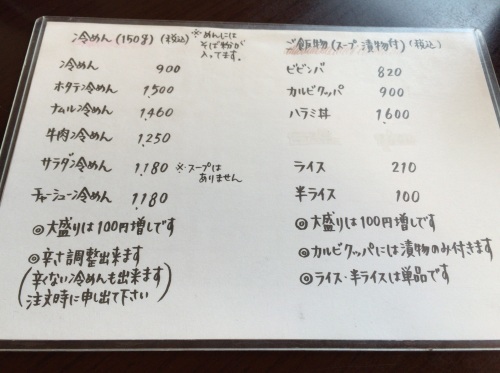 冷めん (150g) (税込)
※めんには
そば粉が
入ってます。
冷めん 900
ホタテ冷めん 1,500
ナムル冷めん 1,460
牛肉冷めん 1,250
サラダ冷めん 1,180 ※スープは
ありません
チャーシュー冷めん 1,180
◎大盛りは100円増しです
◎辛さ調整出来ます
(辛くない冷めんも出来ます
注文時に申し出て下さい)
ご飯物 (スープ 漬物付) (税込)
ビビンバ 820
カルビクッパ 900
ハラミ丼 1,600
ライス 210
半ライス 100
◎大盛りは100円増しです
◎カルビクッパには漬物のみ付きます
◎ライス・半ライスは単品です